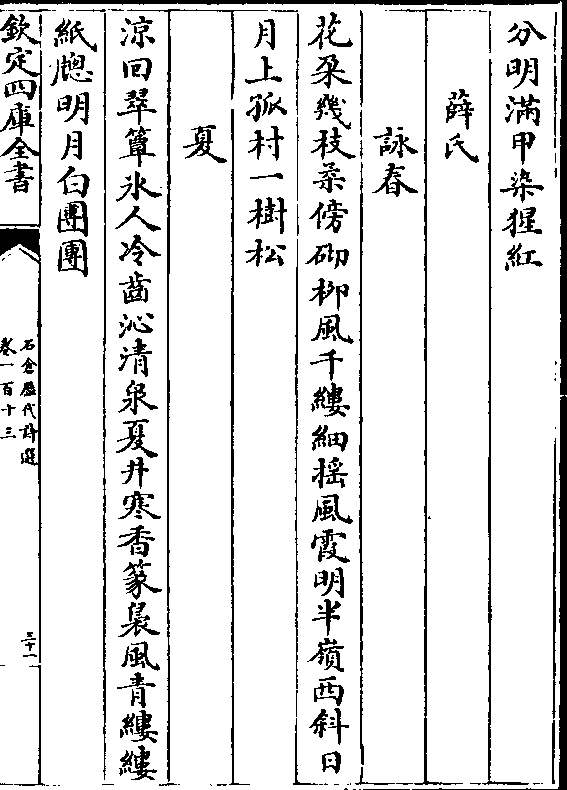 分明滿甲染猩紅
薛氏
詠春
花朶幾枝柔傍砌柳風千縷細揺風霞明半嶺西斜日
月上孤村一樹松
夏
涼回翠簟氷人冷齒沁清泉夏井寒香篆裊風青縷縷
紙牕明月白團團
欽定四庫全書
石倉歴代詩選
卷一百十三
三十一